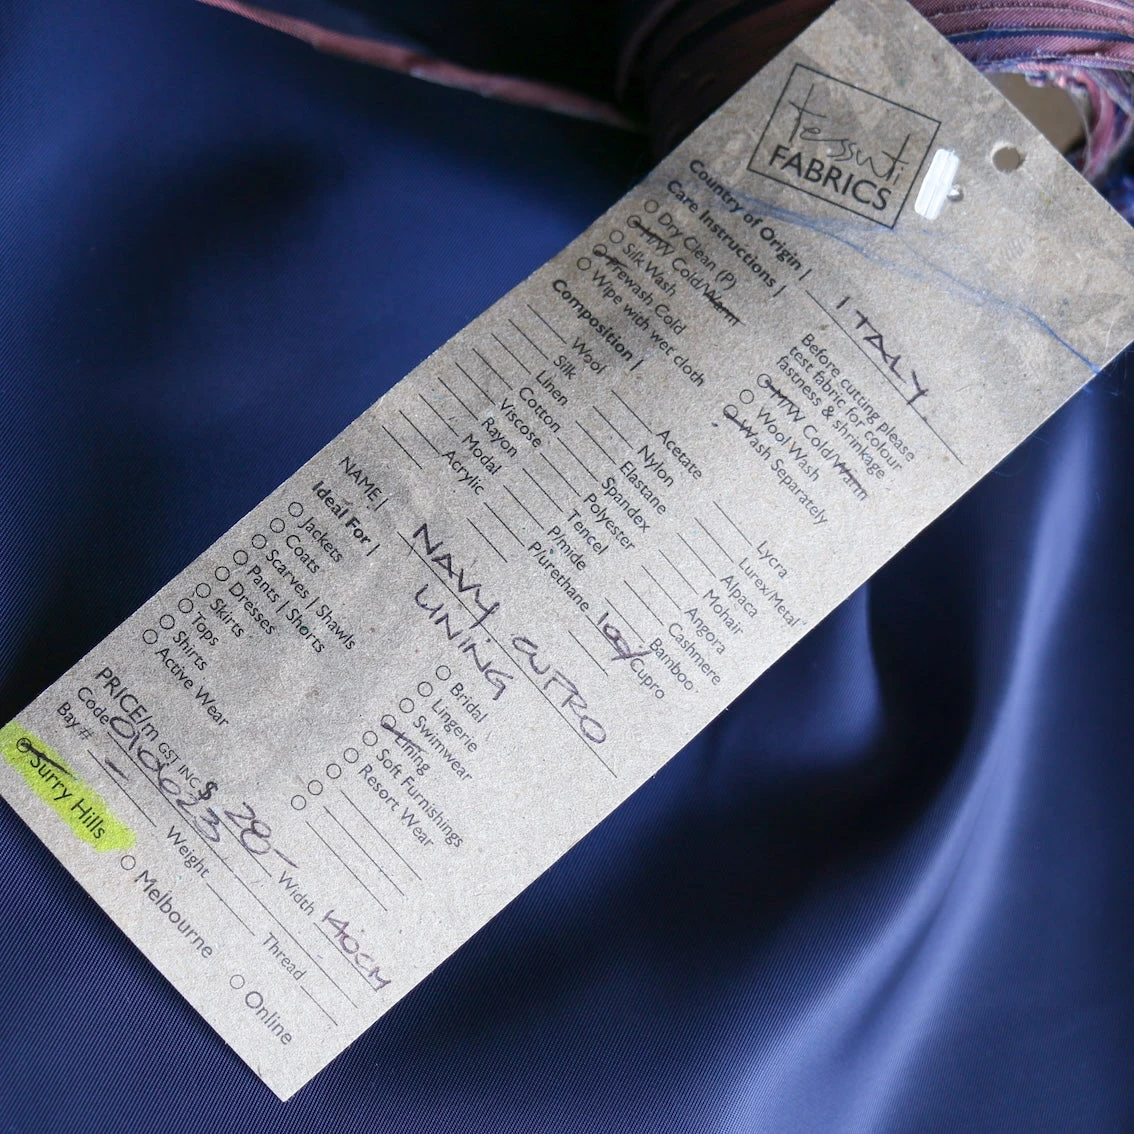 Tessuti
FABRICS
Country of Origin | ITALY
Care Instructions |
Dry Clean (P)
M/W Cold/Warm
Silk Wash
Prewash Cold
Wipe with wet cloth
Before cutting please
test fabric for colour
fastness & shrinkage
M/W Cold/Warm
Wool Wash
Wash Separately
Composition |
Wool
Silk
Linen
Cotton
Viscose
Rayon
Modal
Acrylic
Acetate
Nylon
Elastane
Spandex
Polyester
Tencel
P/mide
P/urethane
Lycra
Lurex/Metal
Alpaca
Mohair
Angora
Cashmere
Bamboo
100% Cupro
NAME | NAVY CUPRO
LINING
Ideal For |
Jackets
Coats
Scarves | Shawls
Pants | Shorts
Dresses
Skirts
Tops
Shirts
Active Wear
Bridal
Lingerie
Swimwear
Lining
Soft Furnishings
Resort Wear
PRICE/m GST INC $ 28- Width 140CM
Code 010023 Weight Thread
Bay # -
Surry Hills Melbourne Online